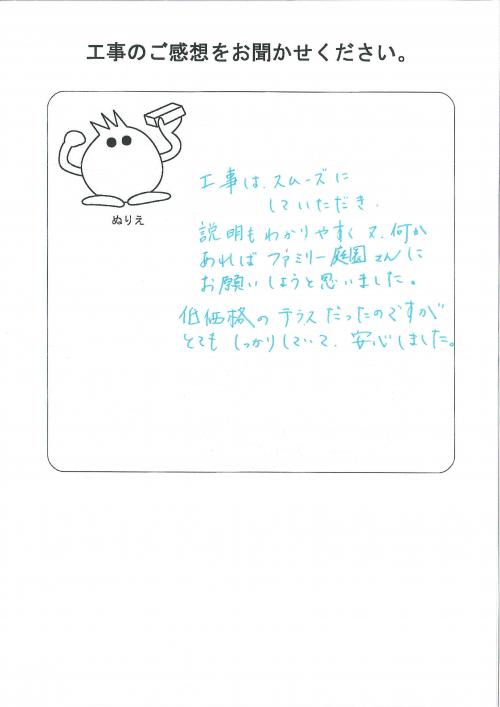 工事のご感想をお聞かせください。
ぬりえ
工事は、スムーズに
していただき、
説明もわかりやすく又、何か
あればファミリー庭園さんに
お願いしようと思いました。
低価格のテラスだったのですが
とてもしっかりしていて、安心しました。